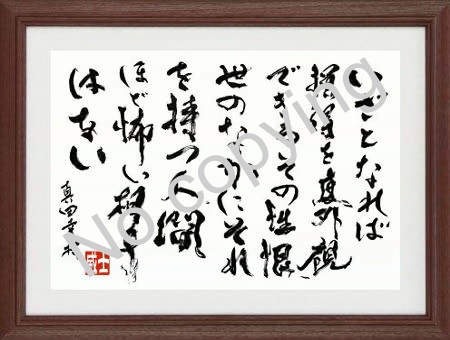 いざとなれば
損得を度外視
できるその性根
世のなかにそれ
を持つ人間
ほど怖い相手
はない
真田幸村
No copying